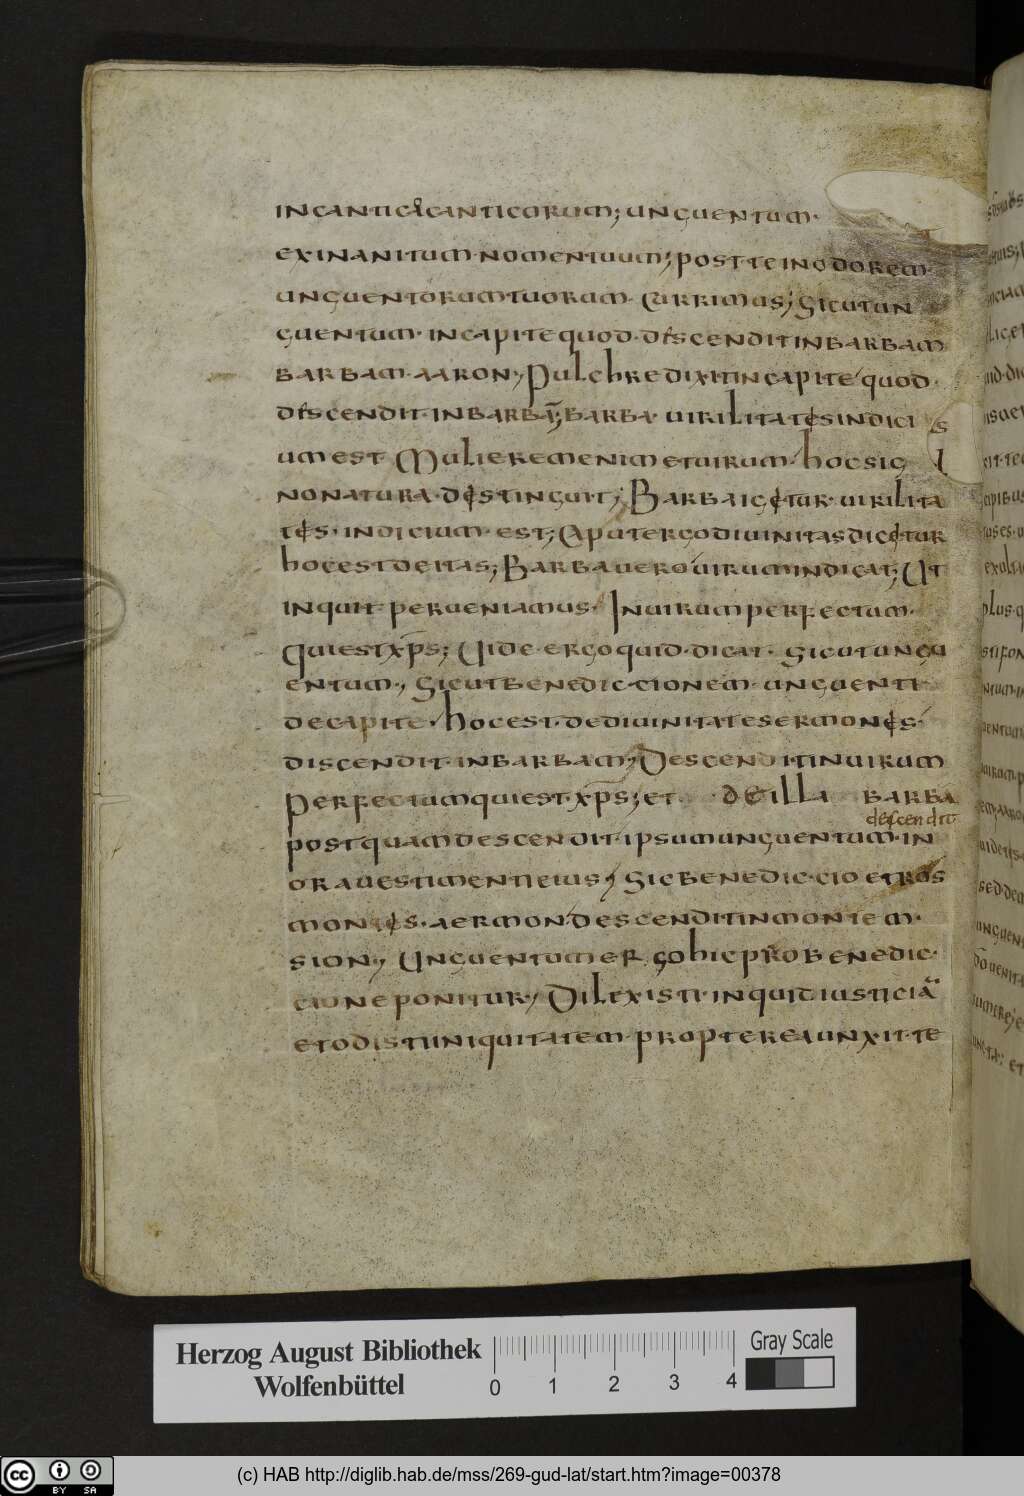 in cantico canticorum; unguentum·
exinanitum nomen tuum; post te in odorem
unguentorum tuorum· Currimus; Sicut un
guentum· in capite quod· descendit in barbam
barbam· aaron; Pulchre dixit in capite quod·
descendit· in barbā; barba· uirilitates indici
um est· Mulierem enim et uirum· hoc sig
no natura· destinguit; Barba igetur· uirilita
tes· indicium· est; Caput ergo diuinitas dicetur
hoc est deitas; Barba uero uirum indicat; Ut
inquit perueniamus· In uirum perfectum·
Qui est xp̄s; Uide ergo quid· dicat· Sicut ungu
entum; Sicut benediccionem· unguenti·
de capite· hoc est· de diuinitate sermones·
discendit· in barbam; Descendit in uirum
perfectum qui est· xp̄s; et de illa barba
descendit
postquam descendit· ipsum unguentum· in
ora uestimenti eius; Sic benediccio et ros
montes· aermon· descendit in montem·
sion; Unguentum ergo hic pro benedic·
cione ponitur; Dilexisti· inquid iusticiā
et odisti iniquitatem· propterea unxit· te
Herzog August Bibliothek
Wolfenbüttel
0 1 2 3 4
Gray Scale
cc BY SA
(c) HAB http://diglib.hab.de/mss/269-gud-lat/start.htm?image=00378